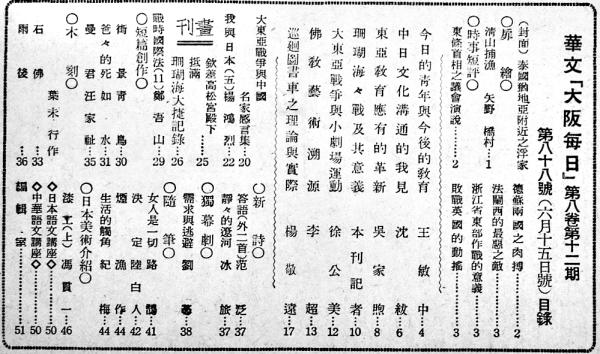 華文「大阪每日」第八卷第十二期
第八十八號(六月十五日號)目錄
(封面)泰國猶地亞附近之浮家
〇扉繪〇
清山捕漁 矢野橋村…1
〇時事短評〇
東條首相之議會演說…2
德蘇兩國之肉搏…2
法蘭西的最惡之敵…3
浙江省東部作戰的意義…3
敗戰英國的動搖…3
今日的青年與今後的敎育 王敏中…4
中日文化溝通的我見 沈紋…6
東亞敎育應有的革新 吳家煦…8
珊瑚海々戰及其意義 本刊記者…10
大東亞戰爭與小劇場運動 徐公美…12
佛敎藝術溯源 李超…13
巡迴圖書車之理論與實際 楊敬遠…17
大東亞戰爭與中國
名家感言集…20
我與日本(五)楊鴻烈…22
畫刊
欽差高松宮殿下
抵滿…25
珊瑚海大捷記錄…26
戰時國際法(11)鄭吾山…29
〇短篇創作〇
街景 青鳥…30
爸々的死 如水…31
曼君 汪家祉…35
〇木刻〇
葉未行作
石佛…33
雨後…36
〇新詩〇
答語(外二首)范 泛…37
靜々的遼河 冰旅…37
〇獨幕劇〇
需求與逃避 劉萼…38
〇隨筆〇
女人是一切 路鵲…41
決定 陸白人…42
煙 漁作…44
生活的觸角 紀梅…44
〇日本美術介紹〇
漆工(上)馮貫一…46
◇日本語文講座◇…50
◇中華語文講座◇…50
編輯室…51